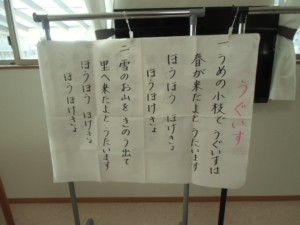 うぐいす
一 うめの小枝で うぐいすは
春が来たよと うたいます
ほうほう ほけきょ
ほうほけきょ
二 雪のお山を きのう出て
里へ来たよと うたいます
ほうほう ほけきょ
ほうほけきょ